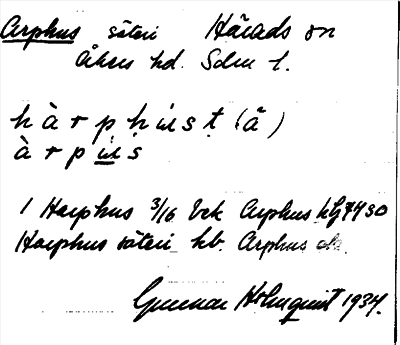 Arphus säteri Härads sn
Åkers hd. Sdm l.
hàrpḥu̇sṭ (å)
àrpu̇s
1 Harphus 3/16 bek Arphus
Harphus säteri kb. Arphus
Gunnar Holmquist 1934.